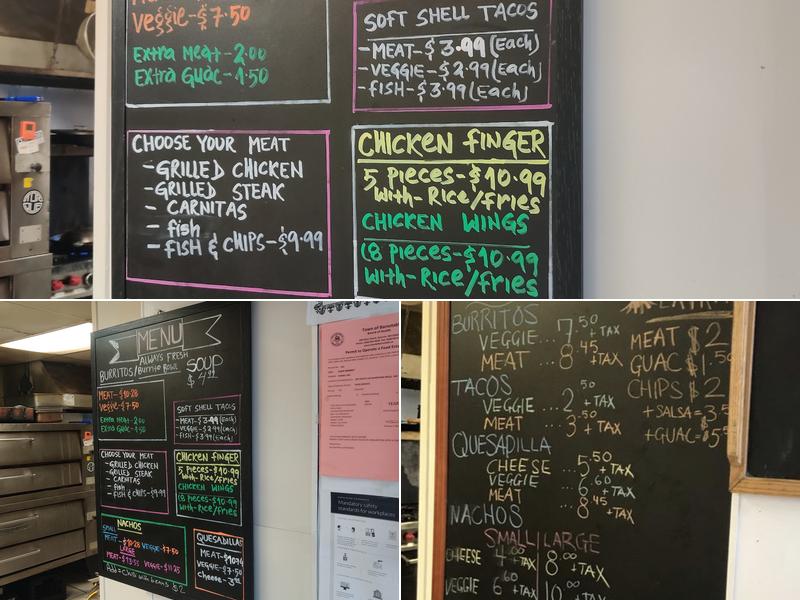 Veggie-$7.50
Extra Meat-2.00
Extra Guac-1.50
SOFT SHELL TACOS
-MEAT-$3.99(Each)
-VEGGIE-$2.99(Each)
-FISH-$3.99(Each)
CHOOSE YOUR MEAT
-GRILLED CHICKEN
-GRILLED STEAK
- CARNITAS
- fish
- FISH & CHIPS-$9.99
CHICKEN FINGER
5 Pieces-$10.99
With-Rice/fries
CHICKEN WINGS
(8 Pieces-$10.99
With-Rice/fries
MENU
ALWAYS FRESH
BURRITOS/Burrito Bowl
SOUP
$4.99
MEAT-$10.28
Veggie-$7.50
Extra Meat-2.00
Extra Guac-1.50
SOFT SHELL TACOS
-MEAT-$3.99(Each)
-VEGGIE-$2.99(Each)
-FISH-$3.99(Each)
CHOOSE YOUR MEAT
-GRILLED CHICKEN
-GRILLED STEAK
- CARNITAS
- fish
- FISH & CHIPS-$9.99
CHICKEN FINGER
5 Pieces-$10.99
With-Rice/fries
CHICKEN WINGS
(8 Pieces-$10.99
With-Rice/fries
NACHOS
SMALL
MEAT-$10.28 VEGGIE-$7.50
LARGE
MEAT-$13.55 VEGGIE-$11.25
Add-Chili with beans $2
QUESADILLA
MEAT-$10.74
VEGGIE-$7.50
cheese-
Town of
Board of Health
Permit to Operate a Food
Mandatory safety
standards for workplaces
BURRITOS
VEGGIE... 7.50 +TAX
MEAT 8.45 +TAX
TACOS
VEGGIE ...2.50 +TAX
MEAT ...3.50 +TAX
QUESADILLA
CHEESE ...5.50 +TAX
VEGGIE 6.60 +TAX
MEAT ...8.45 +TAX
NACHOS
SMALL LARGE
CHEESE 4.00 +TAX 8.00 +TAX
VEGGIE 6.60 +TAX 10.00 +TAX
MEAT $2
GUAC $1.50
CHIPS $2
+SALSA=3.5
+GUAC=$5.5